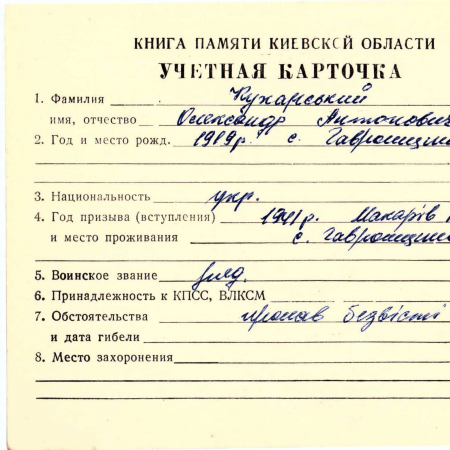 КНИГА ПАМЯТИ КИЕВСКОЙ ОБЛАСТИ
УЧЕТНАЯ КАРТОЧКА
1. Фамилия Кухарський
имя, отчество Олександр Антонович
2. Год и место рожд. 1919р. с. Гавронщин
3. Национальность укр.
4. Год призыва (вступления) 1941р. Макарів
и место проживания с. Гавронщин
5. Воинское звание
6. Принадлежность к КПСС, ВЛКСМ
7. Обстоятельства пропав безвісті
и дата гибели
8. Место захоронения